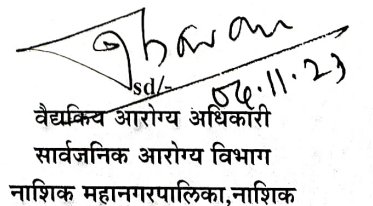 sd/-
वैद्यकिय आरोग्य अधिकारी
सार्वजनिक आरोग्य विभाग
नाशिक महानगरपालिका,नाशिक